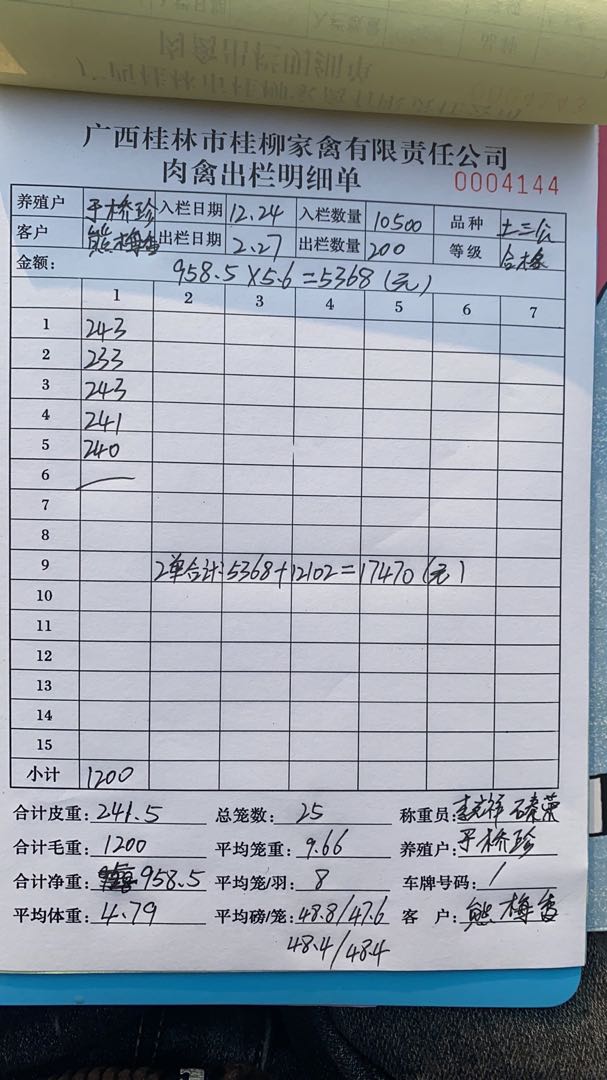 广西桂林市桂柳家禽有限责任公司
肉禽出栏明细单
0004144
养殖户 于桥珍 入栏日期 12.24 入栏数量 10500 品种 土三公
客户 熊梅香 出栏日期 2.27 出栏数量 200 等级 合格
金额: 958.5×5.6=5368(元)
1 2 3 4 5 6 7
1 243
2 233
3 243
4 241
5 240
6
7
8
9 2单合计:5368+12102=17470(元)
10
11
12
13
14
15
小计 1200
合计皮重: 241.5 总笼数: 25 称重员:
合计毛重: 1200 平均笼重: 9.66 养殖户: 于桥珍
合计净重: 958.5 平均笼/羽: 8 车牌号码: /
平均体重: 4.79 平均磅/笼: 48.8/47.6 客户: 熊梅香
48.4/48.4